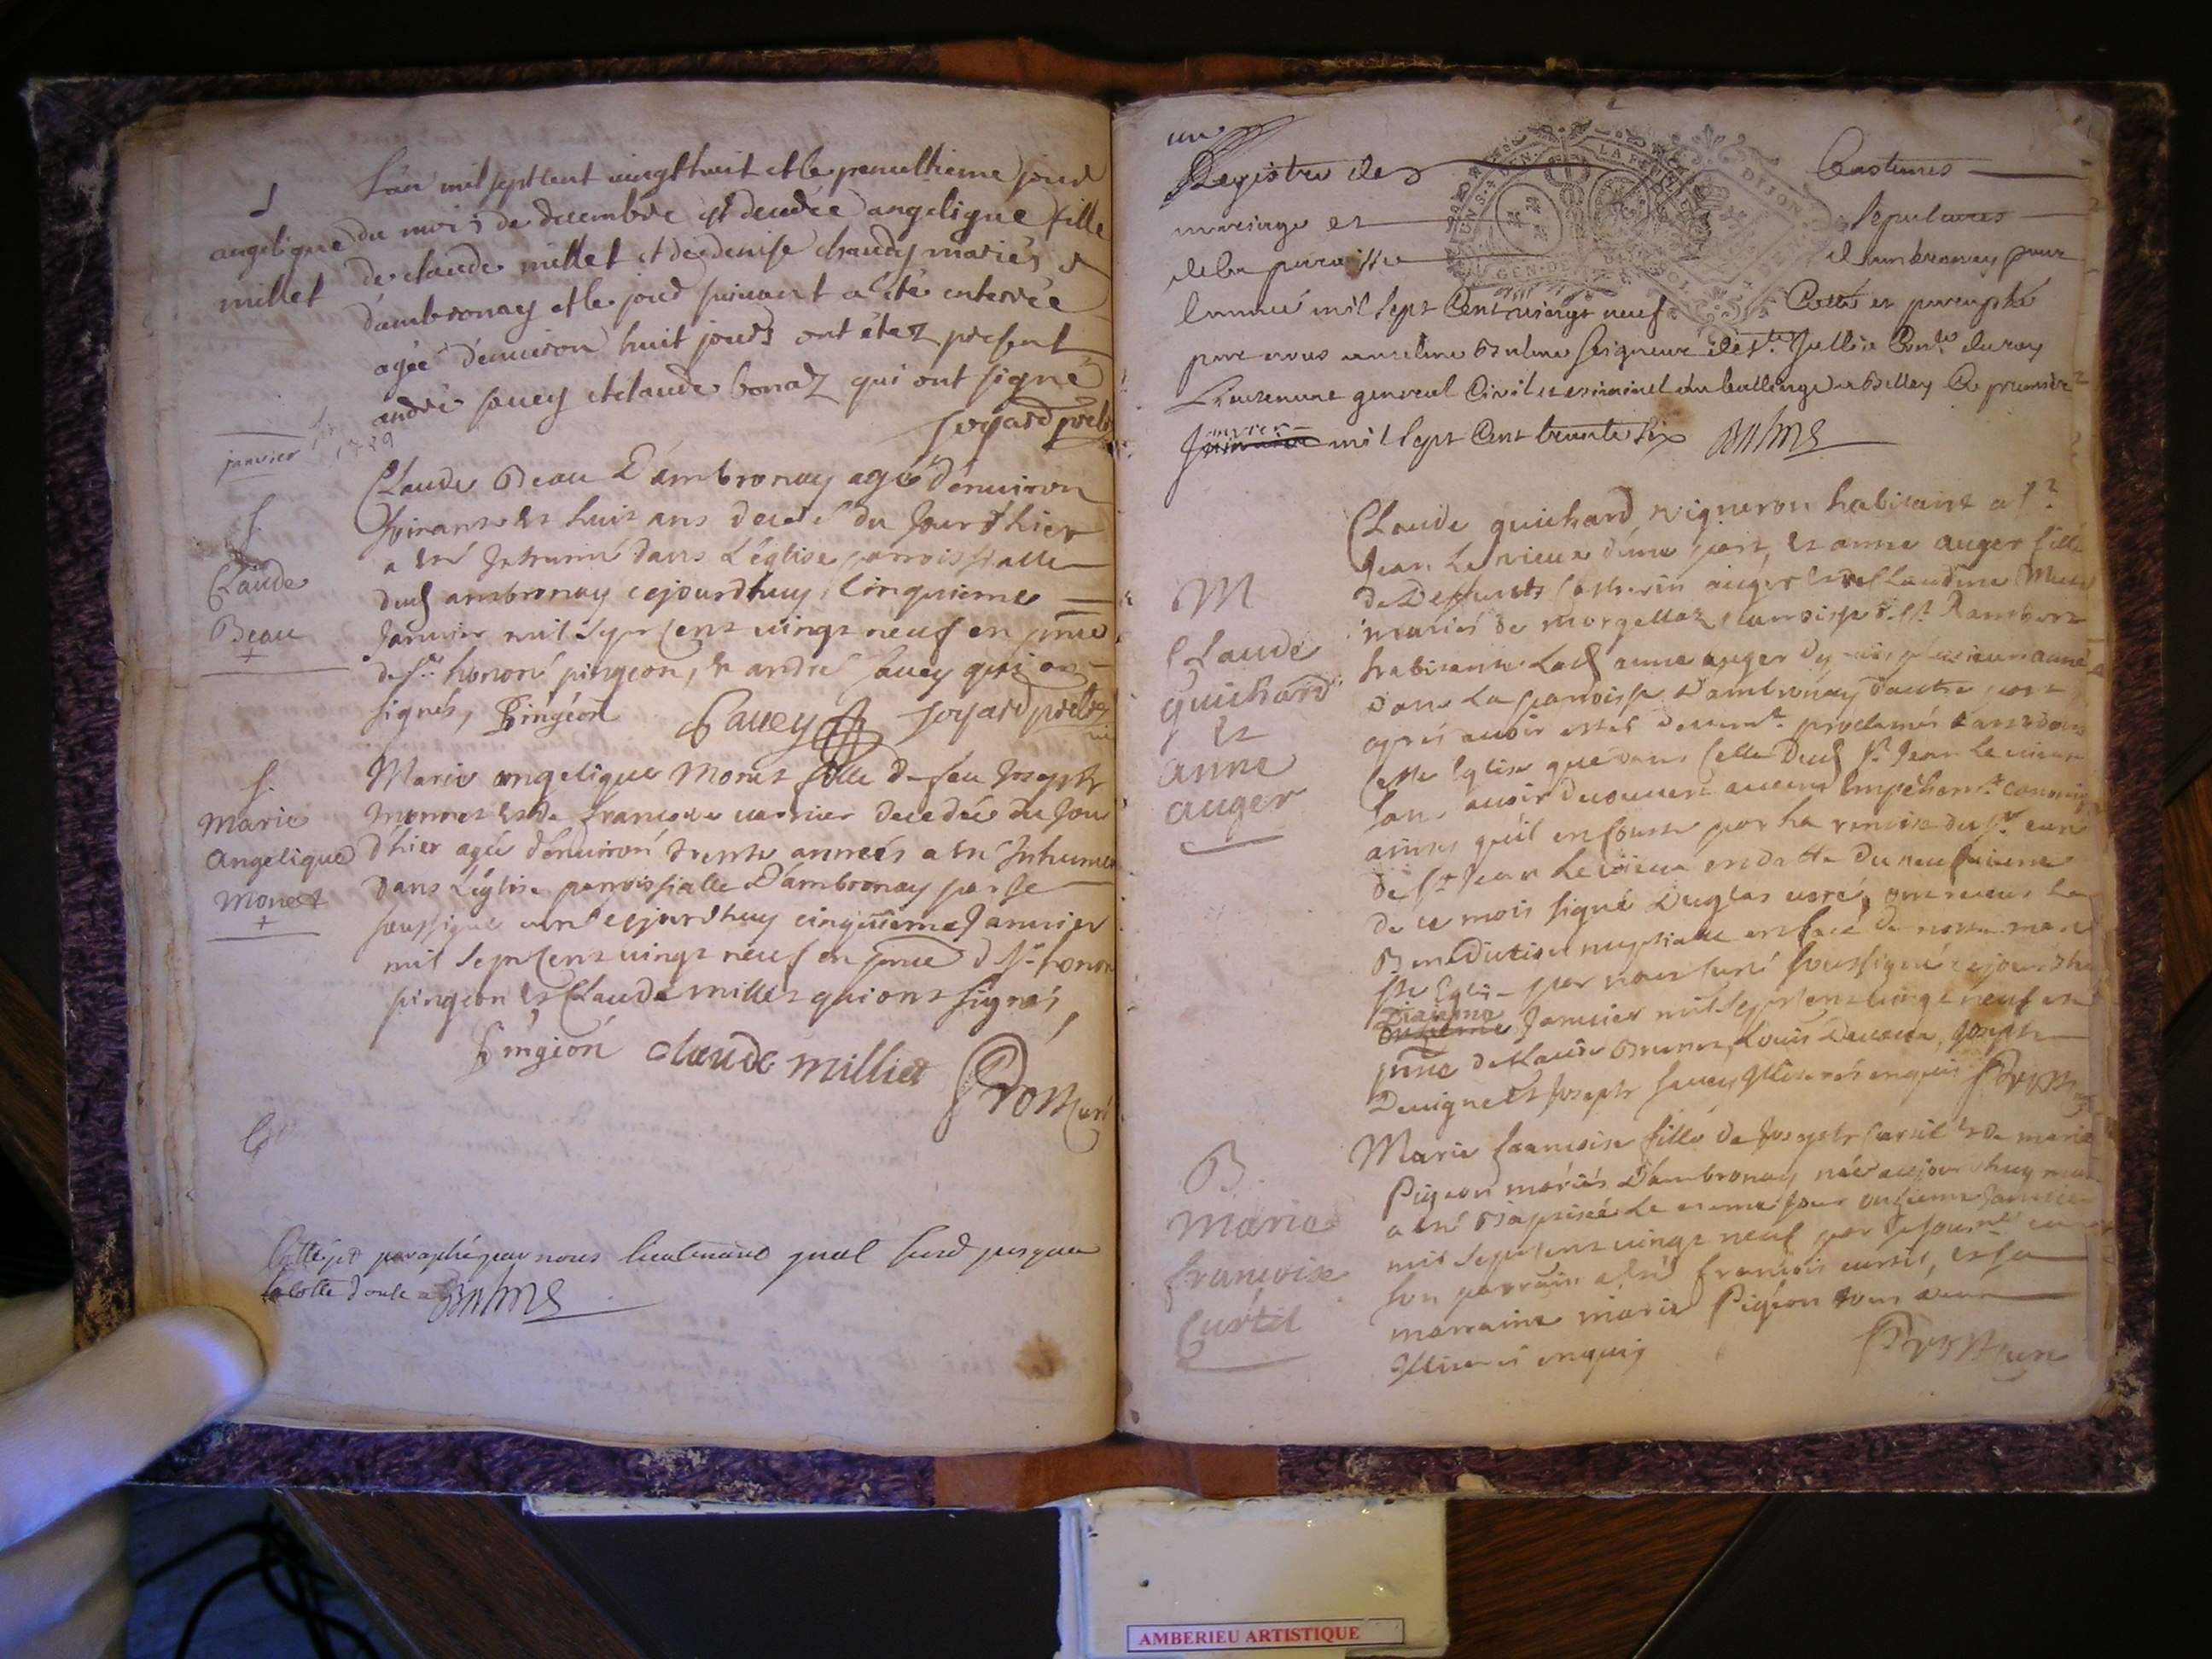 L'an mil sept cent vingt huit et le penultieme jour
angelique du mois de decembre est decedée angelique fille
millet de claude millet et de denise chaudy mariés
d'ambronay et le jour suivant a été enterrée
agée d'environ huit jours ont étez present
andré sauey et claude bonaz qui ont signé
janvier 1729
Claude Beau D'ambronay agé d'enuiron
soixante et huit ans decedé du Jour d'hier
a esté Inhumé dans L'église parroissialle
dud ambronay cejourdhuy Cinquieme
Januier mil sept cent uingt neuf en pnce
de sr honoré pingeon, et andré sauey qui on
signés, Pingeon Sauey
S.
Claude
Beau
+
Marie angelique Monet fille de feu Joseph
monnet et de francoise uernier decedée du Jour
d'hier agée d'enuiron trente années a esté Inhumée
dans L'églize parroissialle D'ambronay par le
soussigné curé cejourdhuy cinquieme Januier
mil sept cent uingt neuf en pnce d sr honoré
pingeon et Claude millet qui ont signés
Pingeon claude milliet
S.
Marie
Angelique
Monet
+
Cotté et paraphé par nous lieutenant gnal jusques
la cotte
un
Registre des Baptemes
mariage et sepulturres
de la paroisse d'ambronay pour
lannée mil sept Cent vingt neuf Cotté et paraphé
par nous anselme Balme seigneur de Ste Jullie Conler du roy
Lieutenant general Civil et criminel au balliage de Belley Ce premier
janvier mil sept Cent trente six Balme
LA FE DIJON
GEN. DE
M
Claude
guichard
et
anne
auger
Claude guichard vigneron habitant a St
Jean Le vieux d'une part, et anne auger fille
de Deffunts auger et de Claudine
mariés de morgellaz parroisse d. St Rambert
habitante Lad anne auger depuis plusieurs années
dans La parroisse D'ambronay d'autre part
aprés auoir estés deuemt proclamés tant dans
cette Eglise que dans celle dud St Jean Le vieux
sans auoir decouuert aucun Empéchemt canonique
ainsi qu'il en conste par la remise du sr curé
de St Jean Le vieux en datte du neufuieme
de ce mois signé Duglas curé, ont receus La
Benediction nuptialle en face de nostre mere
Ste Eglise par nous curé soussigné cejourdhuy
Dixieme Januier mil sept cent uingt neuf en
pnce de Claude Brunet, Louis, Joseph
et Joseph sauey Illiterés enquis
B.
Marie
francoise
Curtil
Marie francoise fille de Joseph curtil et de marie
Pigeon mariés D'ambronay née aujourdhuy
a esté Baptisée Le meme Jour onzieme Januier
mil sept cent uingt neuf par Le soussné curé
son parrain a esté francois curtil, et sa
marraine marie Pigeon tous deux
Illiterés enquis
AMBERIEU ARTISTIQUE